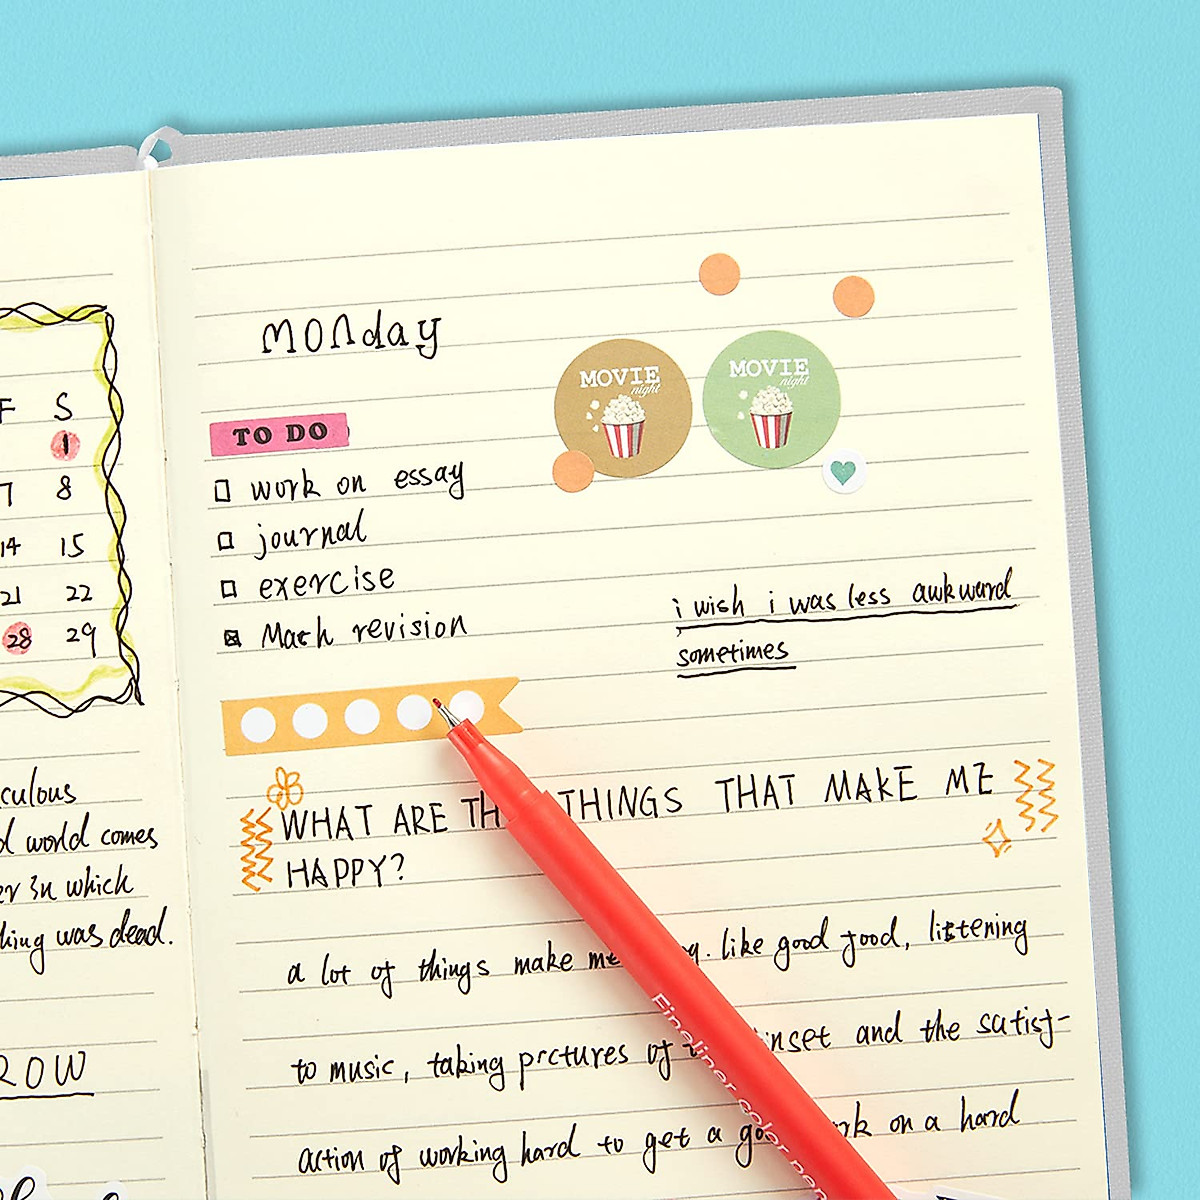 F S
1
7 8
14 15
21 22
28 29
culous
d world comes
er in which
thing was dead.
ROW
monday
TO DO
work on essay
journal
exercise
Math revision
MOVIE
night
MOVIE
night
i wish i was less awkward
sometimes
WHAT ARE THINGS THAT MAKE ME
HAPPY?
a lot of things make like good food, listening
to music, taking prctures of and the satisf-
action of working hard to get a on a hard
Fineliner color pen